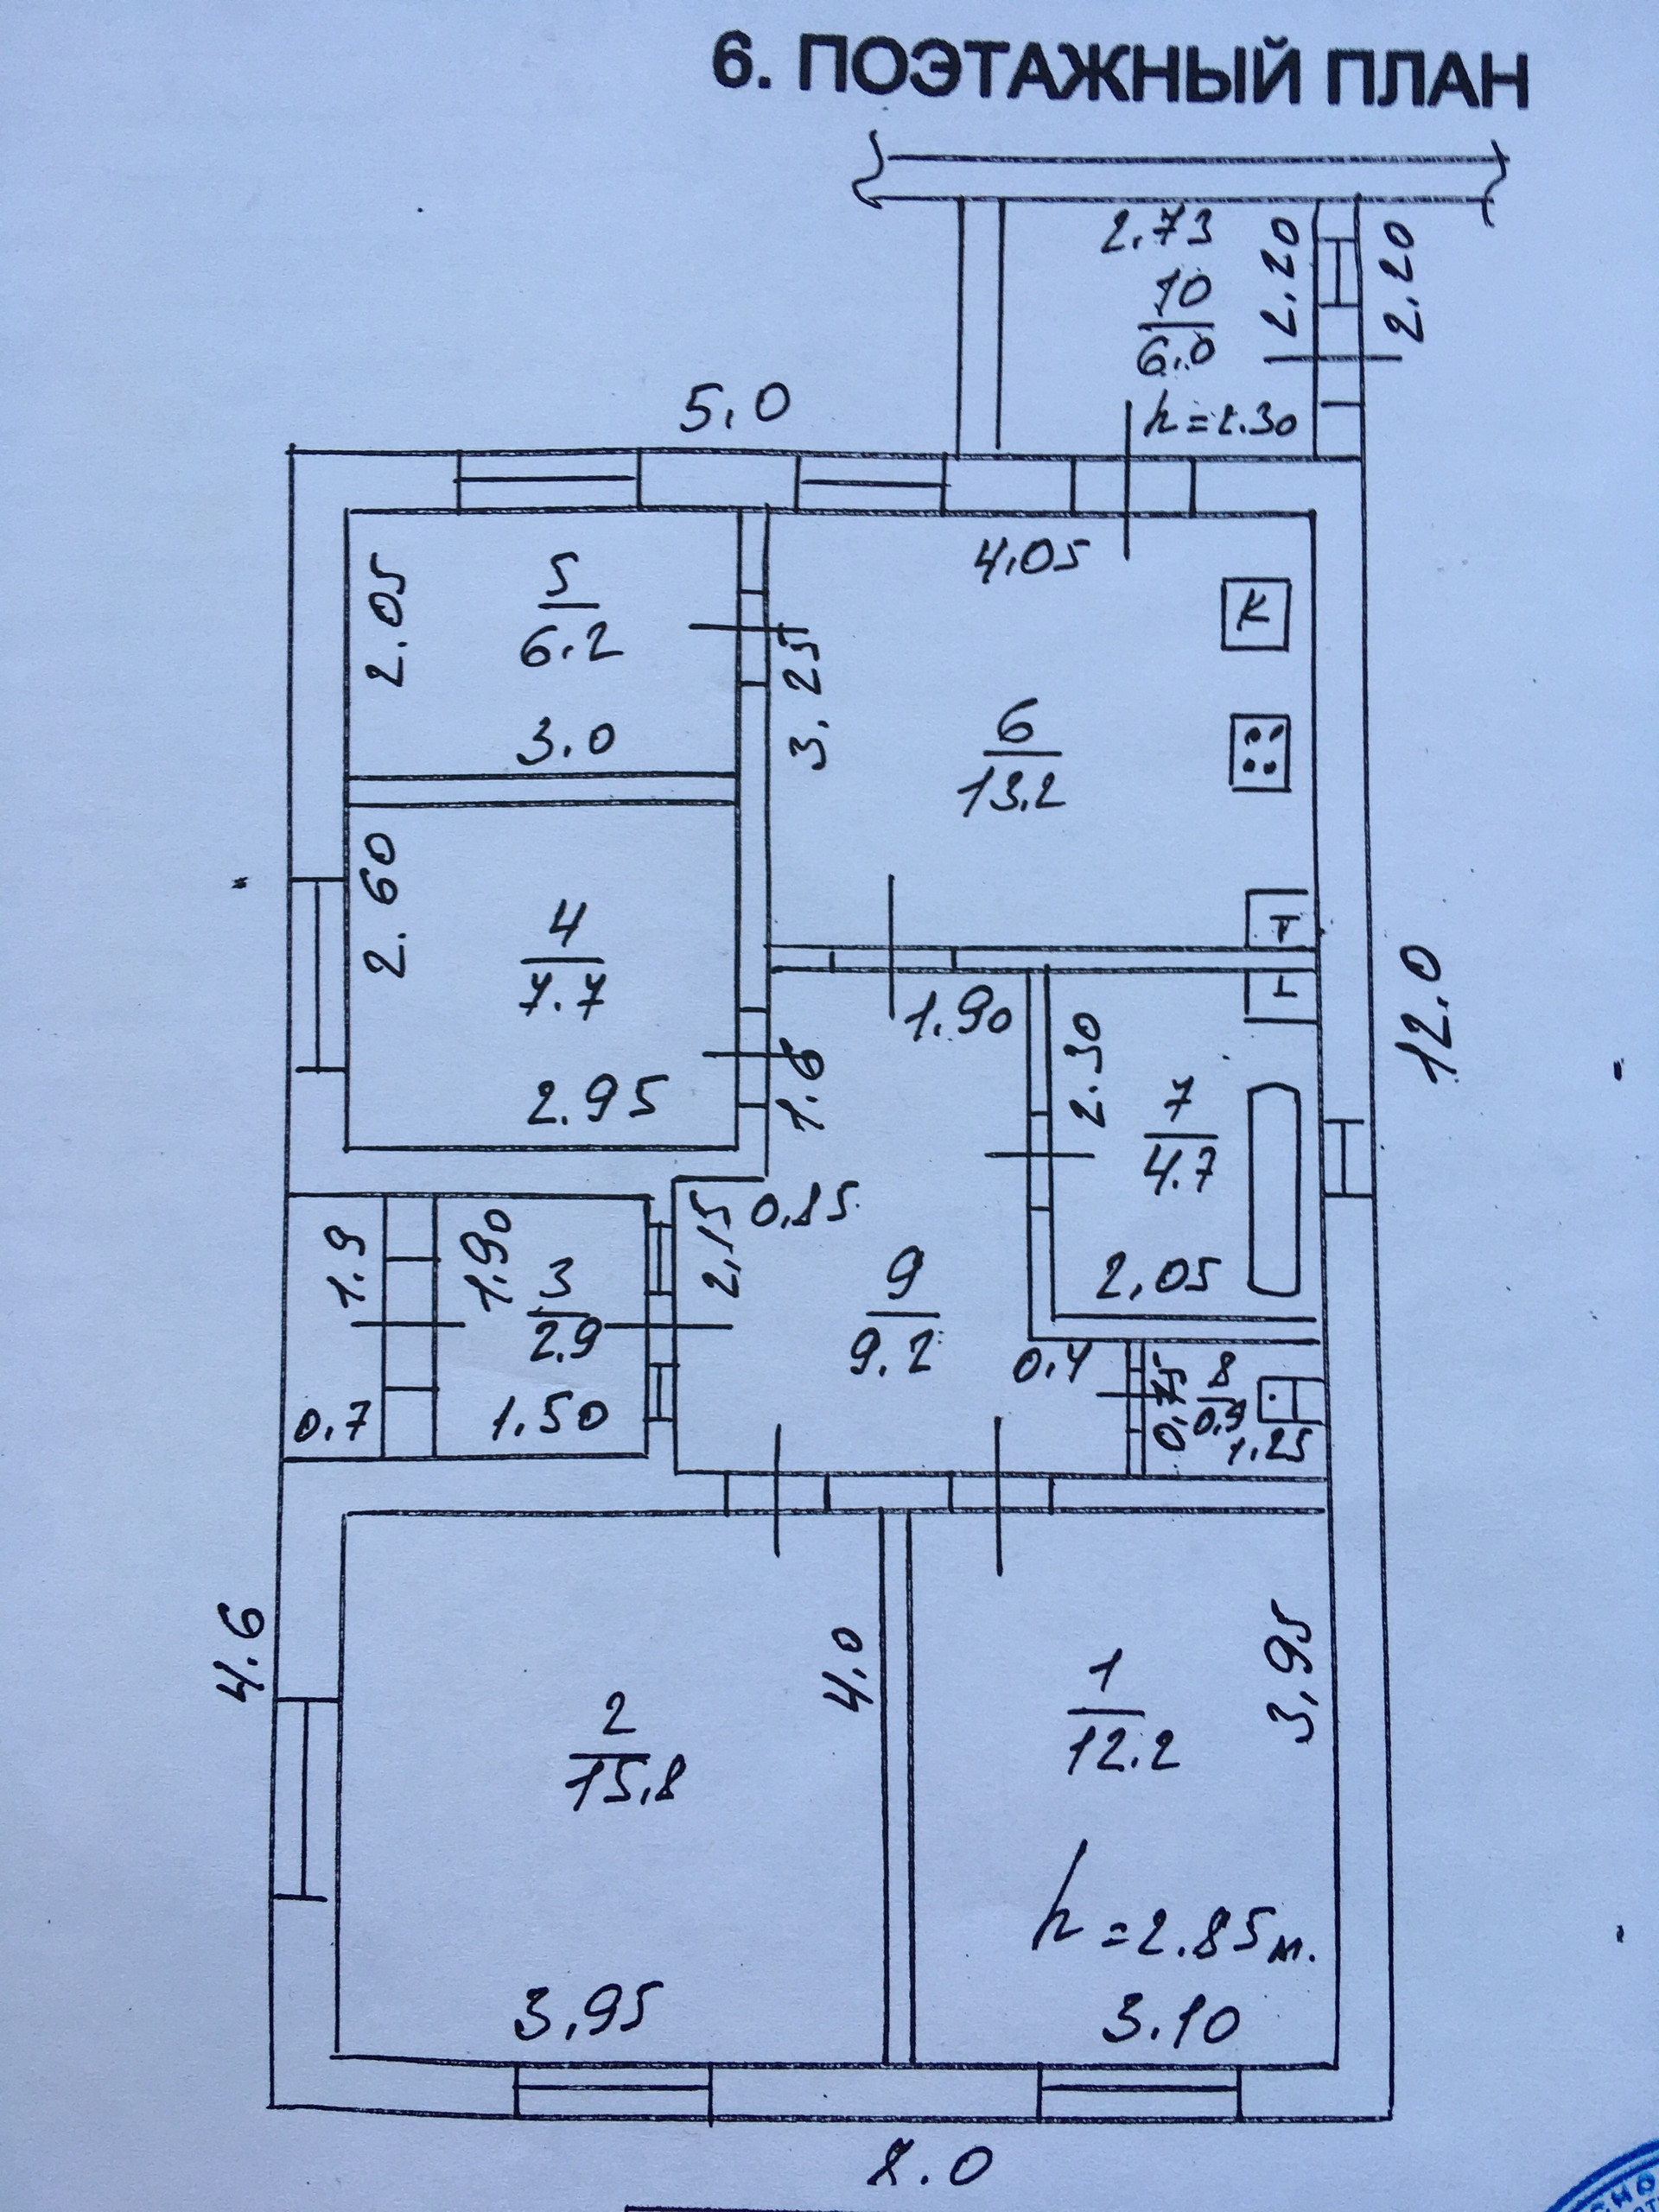 6. ПОЭТАЖНЫЙ ПЛАН
2.73
2.20
2.20
10
6.0
h=2.30
5,0
4,05
2.05
5
6.2
3.0
3.25
К
6
13.2
2.60
4
7.7
2.95
Т
Г
12.0
1.90
1.6
2.30
7
4.7
2,05
0,85
2,15
1.9
0.7
1.90
3
2.9
1.50
9
9.2
0.4
0.75
8
0,9
1.25
4.6
4,0
2
15,8
3,95
1
12.2
3,95
h=2.85м.
3.10
8.0